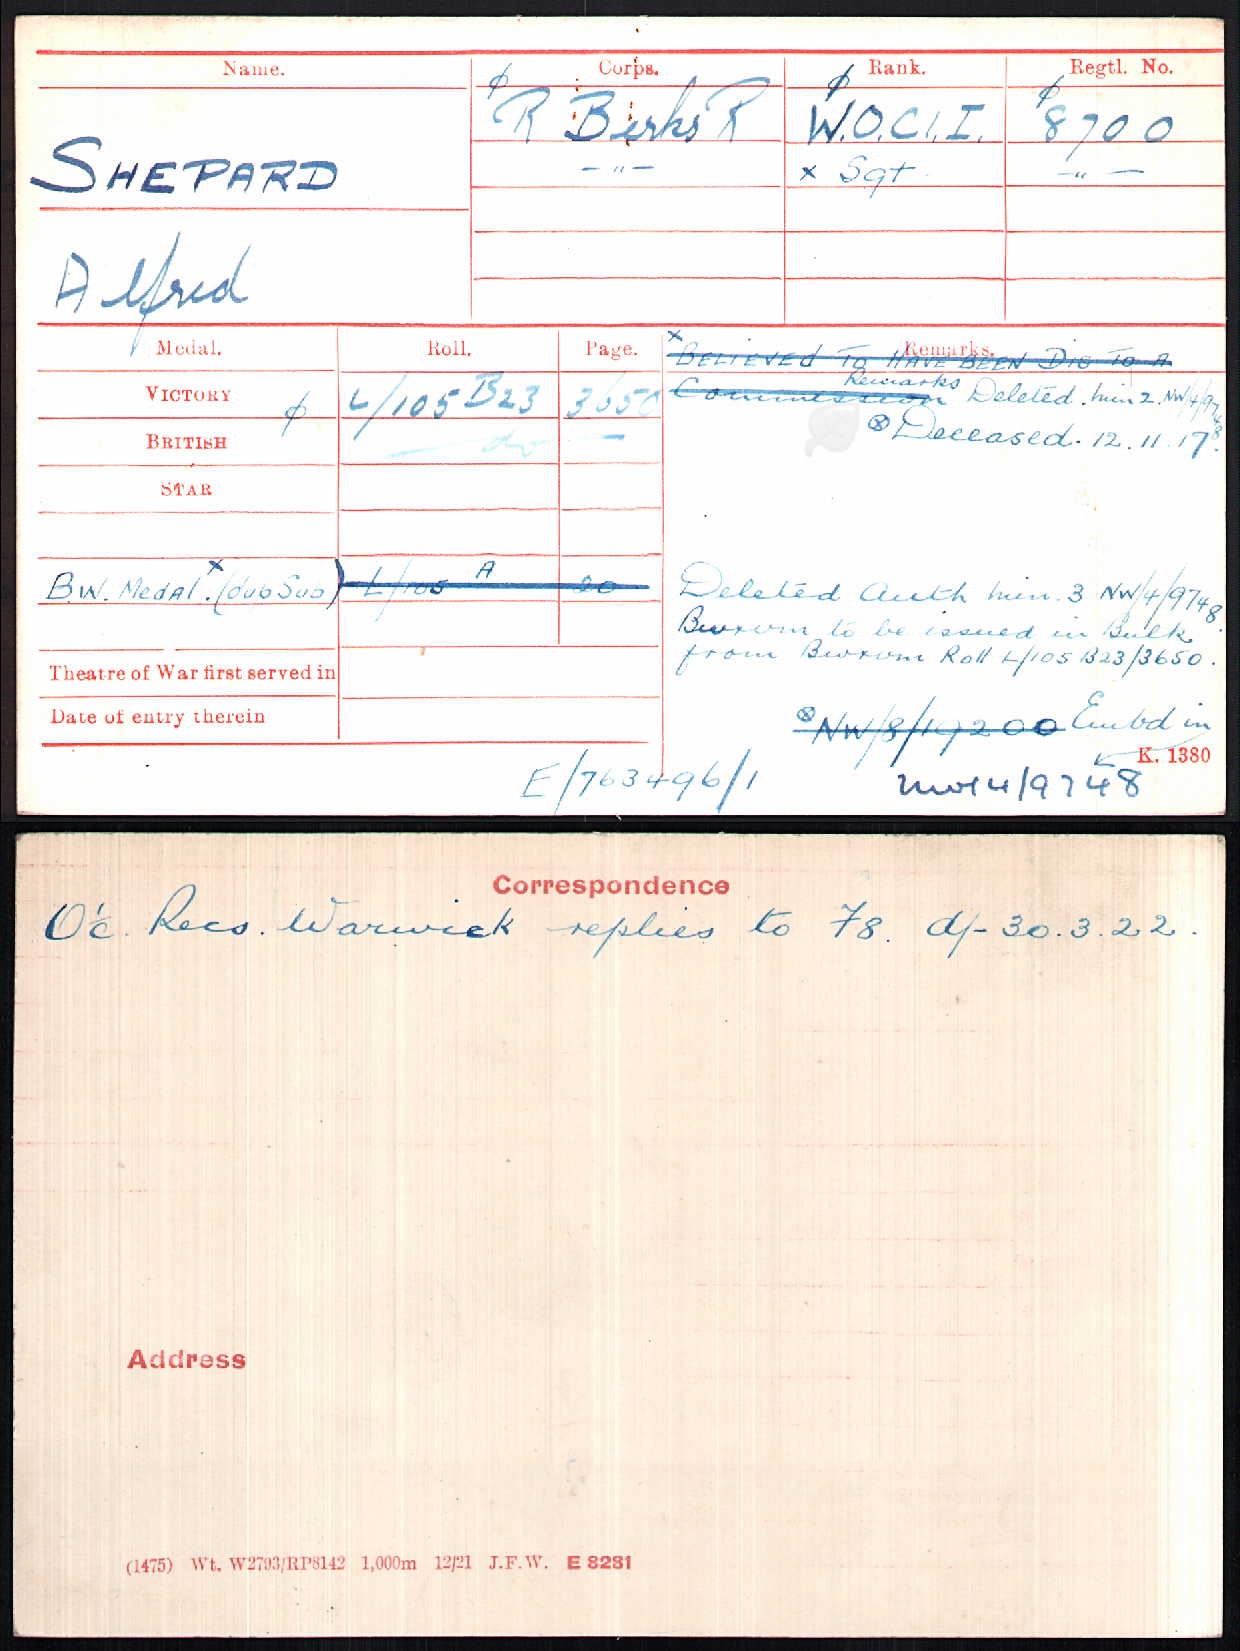 Name. Corps. Rank. Regtl. No.
R Berks R W.O.Cl.I. 8700
SHEPARD — " — x Sgt — " —
Alfred
Medal. Roll. Page. Remarks.
x BELIEVED TO HAVE BEEN DIS TO A
VICTORY L/105 B23 3650 Commission Remarks Deleted. min 2. NW/4/9748
BRITISH — do — ⊗ Deceased. 12.11.17.
STAR
B.W. Medal. x (dub Sus) L/105 A 20 Deleted Auth min. 3 NW/4/9748.
Bwxvm to be issued in Bulk
from Bwxvm Roll L/105 B23/3650.
Theatre of War first served in
Date of entry therein ⊗ NW/8/19200 Embd in
K. 1380
E/763496/1 NW/4/9748
Correspondence
O/c. Recs. Warwick replies to 78. d/- 30.3.22.
Address
(1475) Wt. W2793/RP8142 1,000m 12/21 J.F.W. E 8281